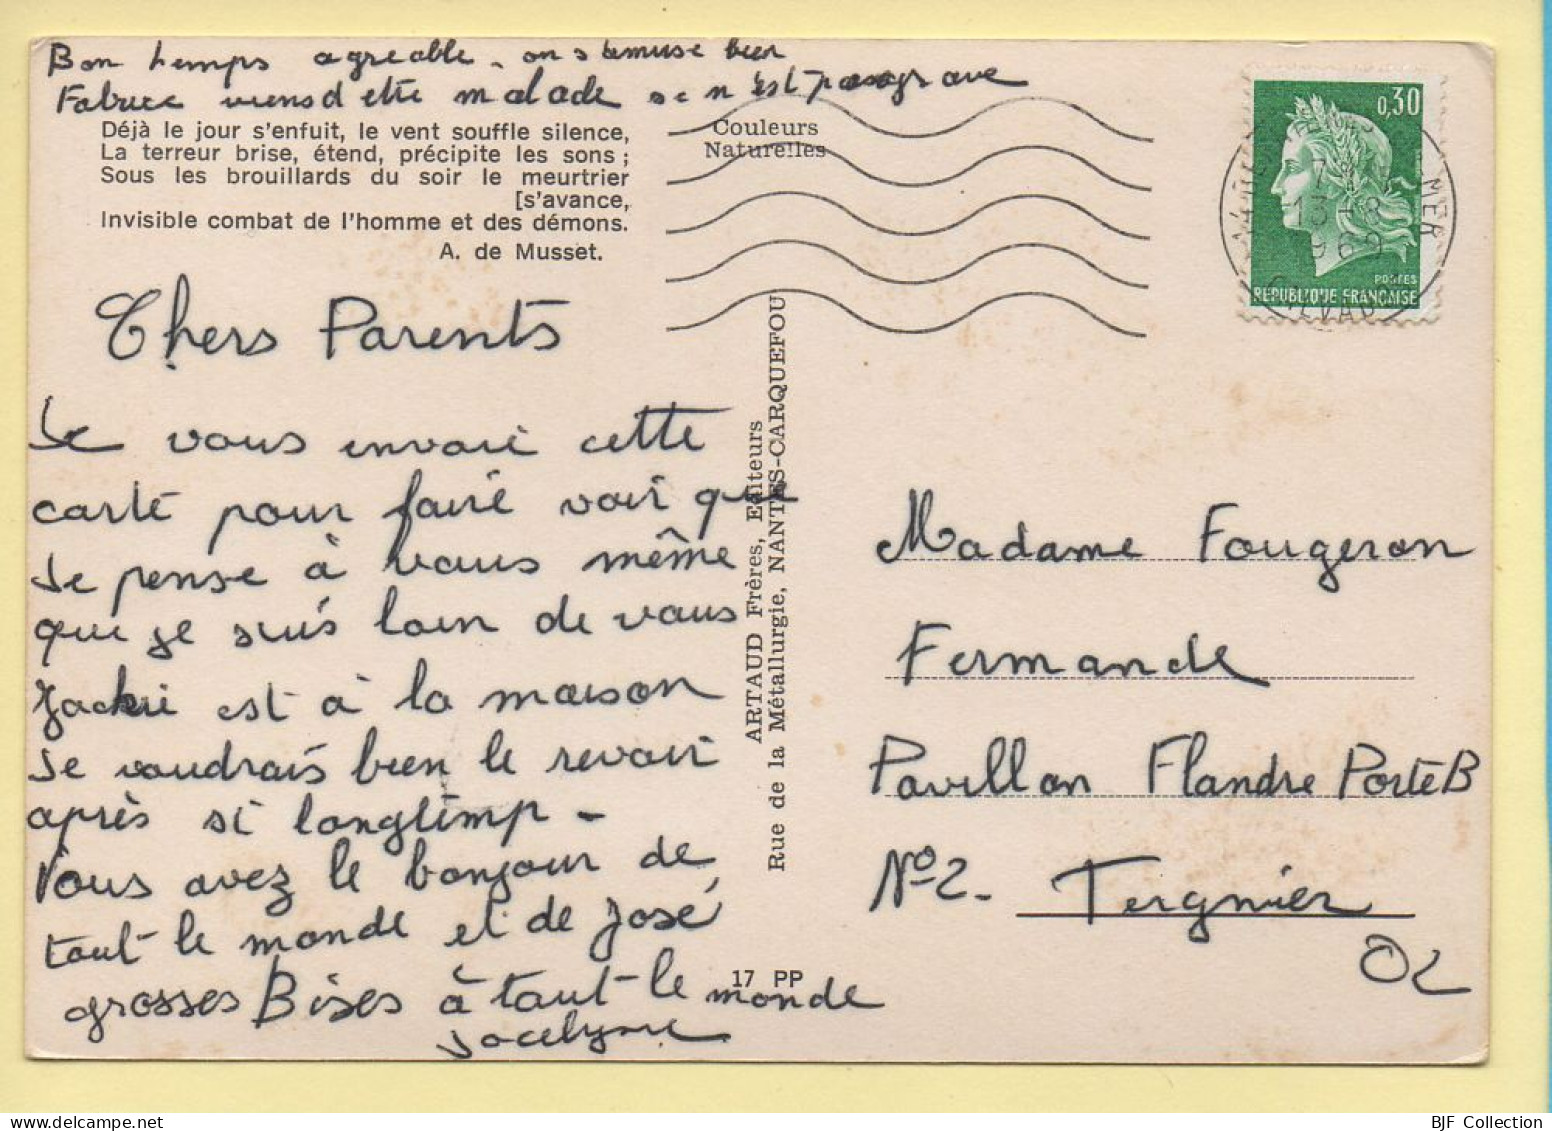 Bon temps agreable - on s'amuse bien
Fabrice viens d'etre malade se n'est pas grave
Déjà le jour s'enfuit, le vent souffle silence,
La terreur brise, étend, précipite les sons ;
Sous les brouillards du soir le meurtrier
[s'avance,
Invisible combat de l'homme et des démons.
A. de Musset.
Couleurs
Naturelles
0,30
POSTES
REPUBLIQUE FRANÇAISE
13
1969
MER
Chers Parents
Je vous envoie cette
carte pour faire voir que
Je pense à vous même
que je suis loin de vous
Jackie est à la maison
Je voudrais bien le revoir
après si longtemp -
Vous avez le bonjour de
tout le monde et de José,
grosses Bises à tout le monde
Jocelyne
ARTAUD Frères, Editeurs
Rue de la Métallurgie, NANTES-CARQUEFOU
17 PP
Madame Fougeron
Fernande
Pavillon Flandre Porte B
N°2 - Tergnier
02
BJF Collection